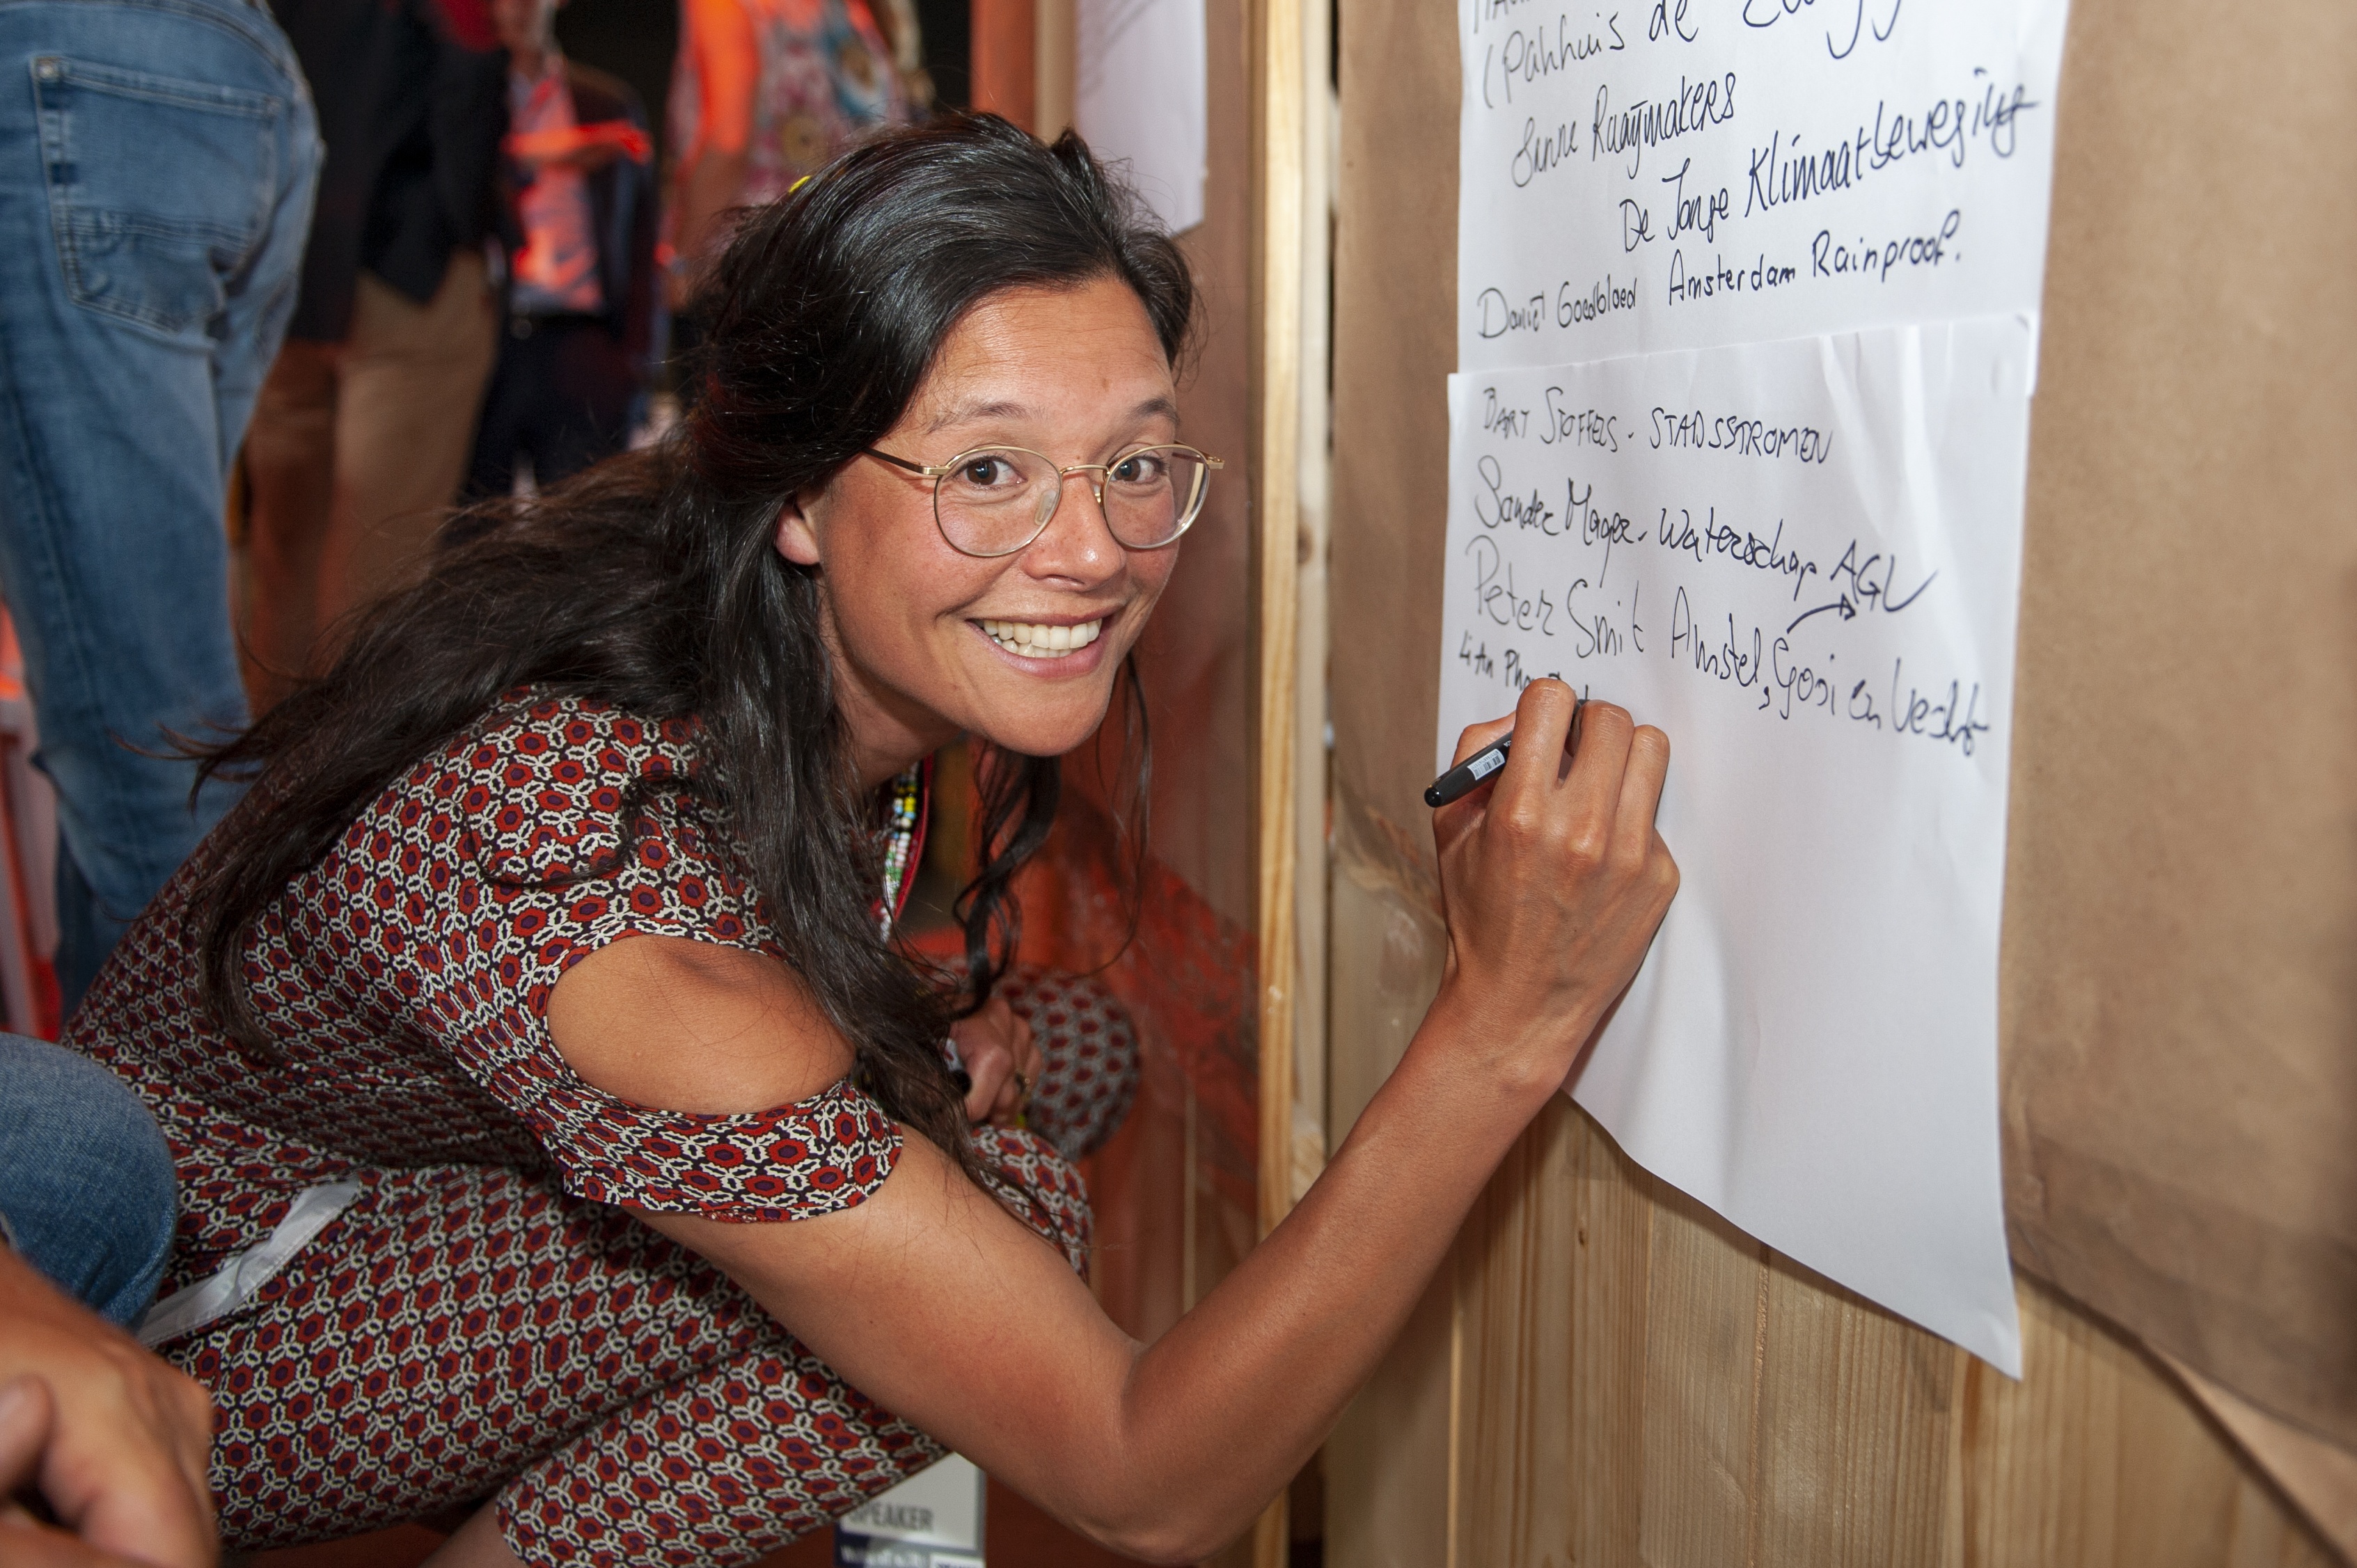 (Pakhuis de
Sanne Raaijmakers
De Jonge Klimaatbeweging
Daniël Goedbloed Amsterdam Rainproof.
BART STOFFELS - STADSSTROMEN
Sander Mager - Waterschap AGV
Peter Smit Amstel, Gooi en Vecht
Li An Pha
SPEAKER